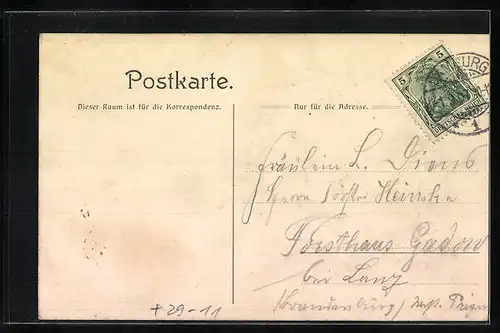 Postkarte.
Dieser Raum ist für die Korrespondenz.
Nur für die Adresse.
5 5
BURG
1
Fräulein L. Diens
Herrn Förster Heincke
Forsthaus Gadow
bei Lanz
(Brandenburg)
+29-11